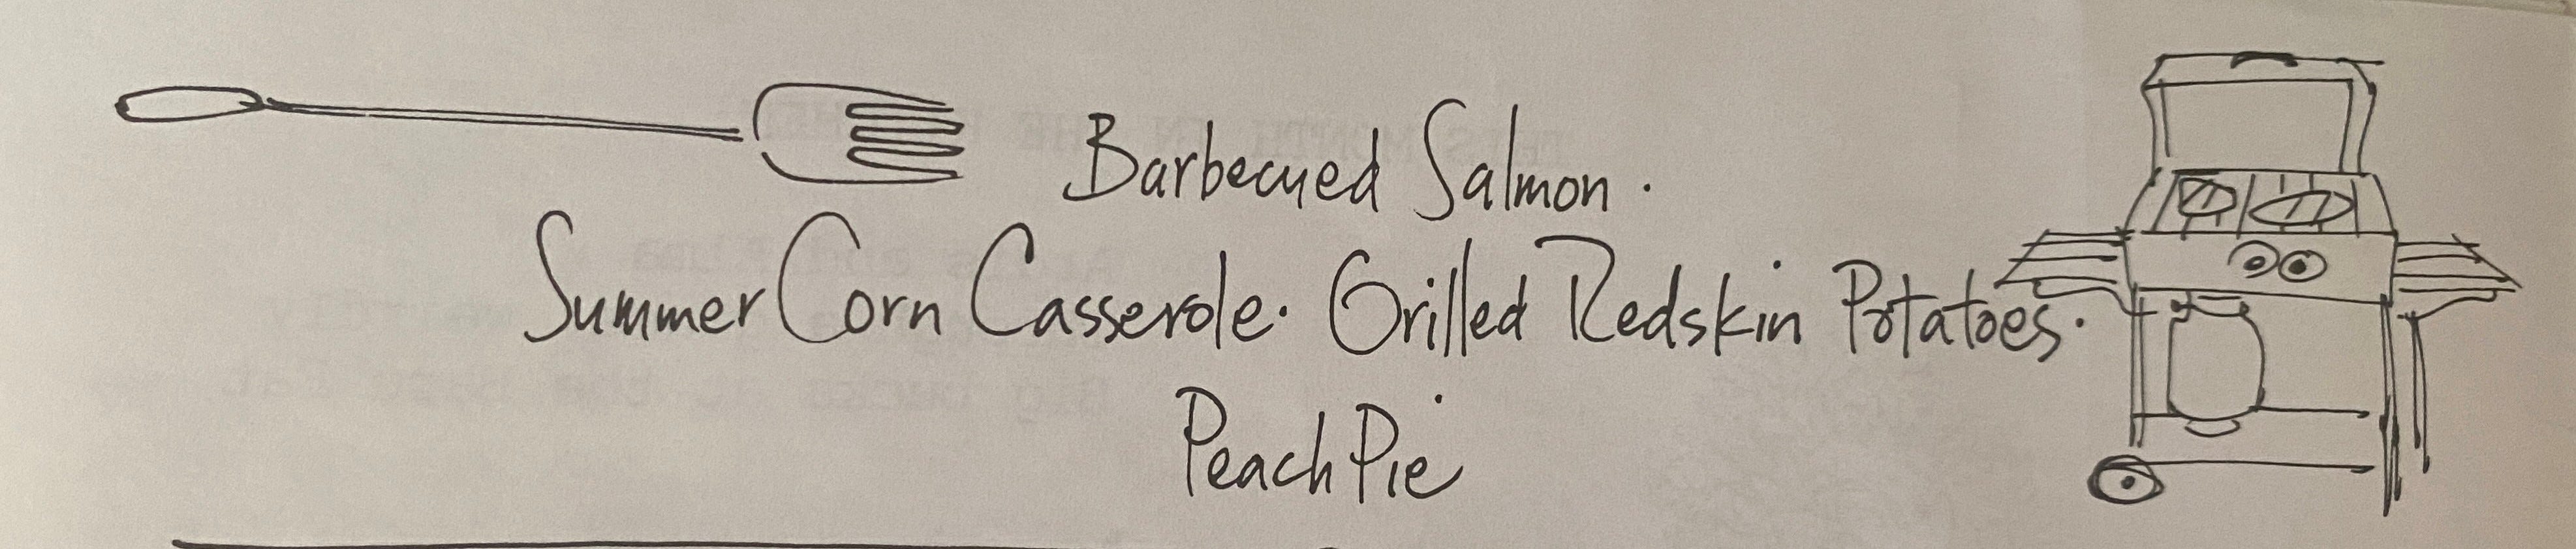 Barbecued Salmon.
Summer Corn Casserole. Grilled Redskin Potatoes.
Peach Pie